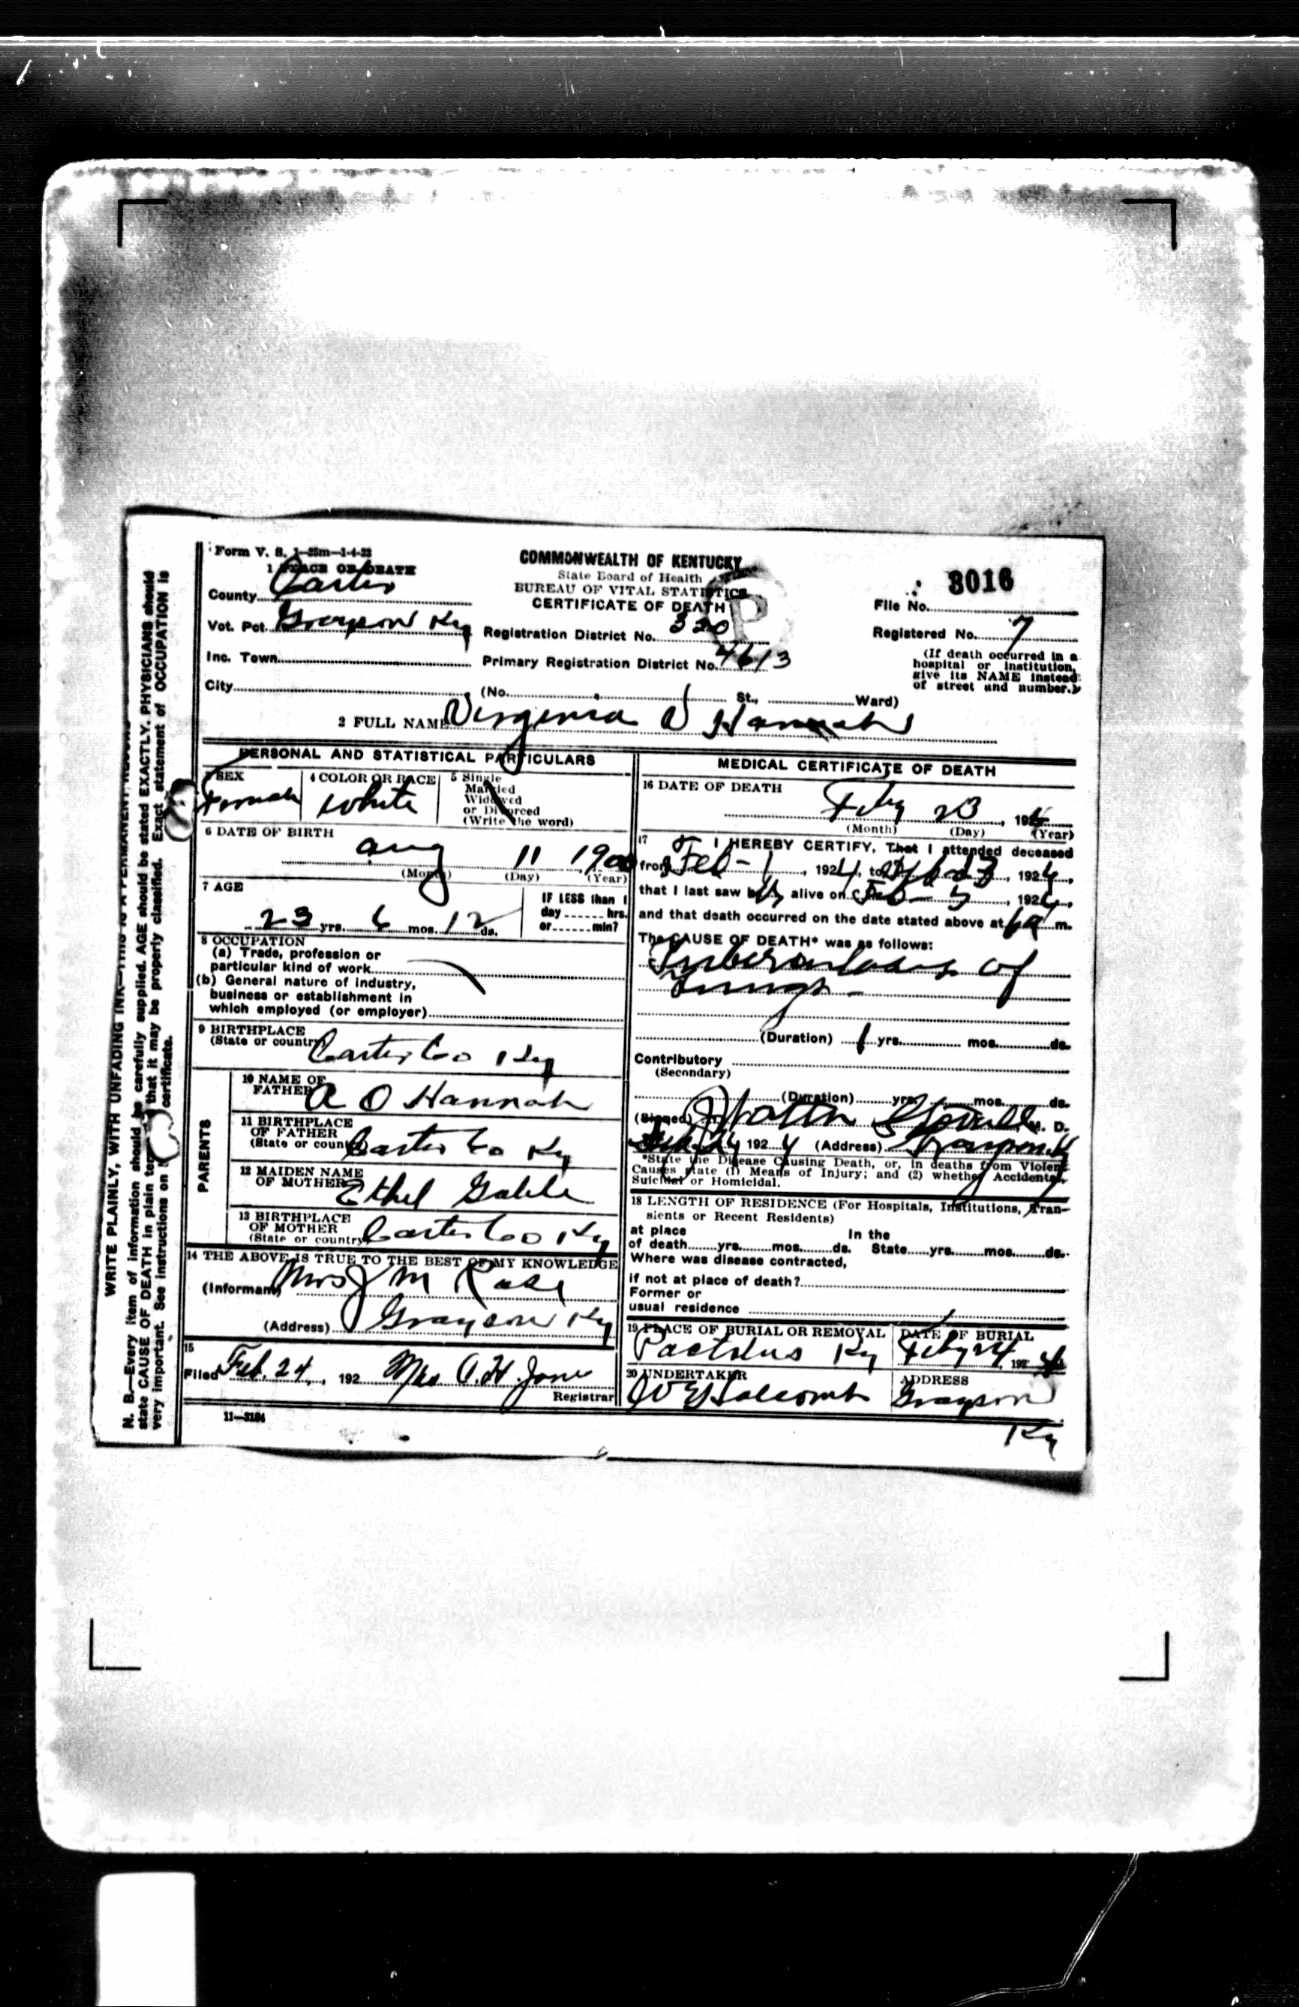 Form V. S. 1—25m—1-4-22
1 PLACE OF DEATH
COMMONWEALTH OF KENTUCKY
State Board of Health
BUREAU OF VITAL STATISTICS
CERTIFICATE OF DEATH
P
File No. 3016
County Carter
Vot. Pct. Grayson Ky
Registration District No. 320
Registered No. 7
Inc. Town
Primary Registration District No. 4613
(If death occurred in a
hospital or institution,
give its NAME instead
of street and number.)
City (No. St., Ward)
2 FULL NAME Virginia Hannah
PERSONAL AND STATISTICAL PARTICULARS
3 SEX
Female
4 COLOR OR RACE
White
5 Single
Married
Widowed
or Divorced
(Write the word)
6 DATE OF BIRTH
Aug 11 1900
(Month) (Day) (Year)
7 AGE
23 yrs. 6 mos. 12 ds.
IF LESS than 1
day hrs.
or min?
8 OCCUPATION
(a) Trade, profession or
particular kind of work
(b) General nature of industry,
business or establishment in
which employed (or employer)
9 BIRTHPLACE
(State or country) Carter Co Ky
PARENTS
10 NAME OF
FATHER A O Hannah
11 BIRTHPLACE
OF FATHER
(State or country) Carter Co Ky
12 MAIDEN NAME
OF MOTHER Ethel
13 BIRTHPLACE
OF MOTHER
(State or country) Carter Co Ky
14 THE ABOVE IS TRUE TO THE BEST OF MY KNOWLEDGE
(Informant) Mrs J M Rose
(Address) Grayson Ky
15
Filed Feb. 24, 192 Mrs. A. H. Jones
Registrar
11—3184
MEDICAL CERTIFICATE OF DEATH
16 DATE OF DEATH
Feby 23, 1924
(Month) (Day) (Year)
17 I HEREBY CERTIFY, That I attended deceased
from Feb - 1, 1924, to Feb 23, 1924,
that I last saw her alive on, 1924,
and that death occurred on the date stated above at m.
The CAUSE OF DEATH* was as follows:
Tuberculosis of
Lungs -
(Duration) 1 yrs. mos. ds.
Contributory
(Secondary)
(Duration) yrs. mos. ds.
(Signed) M. D.
Feb 24 1924 (Address) Grayson Ky
*State the Disease Causing Death, or, in deaths from Violent
Causes state (1) Means of Injury; and (2) whether Accidental,
Suicidal or Homicidal.
18 LENGTH OF RESIDENCE (For Hospitals, Institutions, Tran-
sients or Recent Residents)
at place In the
of death yrs. mos. ds. State yrs. mos. ds.
Where was disease contracted,
if not at place of death?
Former or
usual residence
19 PLACE OF BURIAL OR REMOVAL
Pactolus Ky
DATE OF BURIAL
Feby 24 1924
20 UNDERTAKER
Holcomb
ADDRESS
Grayson
Ky
WRITE PLAINLY, WITH UNFADING INK—THIS IS A PERMANENT RECORD
N. B.—Every item of information should be carefully supplied. AGE should be stated EXACTLY. PHYSICIANS should
state CAUSE OF DEATH in plain terms, that it may be properly classified. Exact statement of OCCUPATION is
very important. See instructions on certificate.